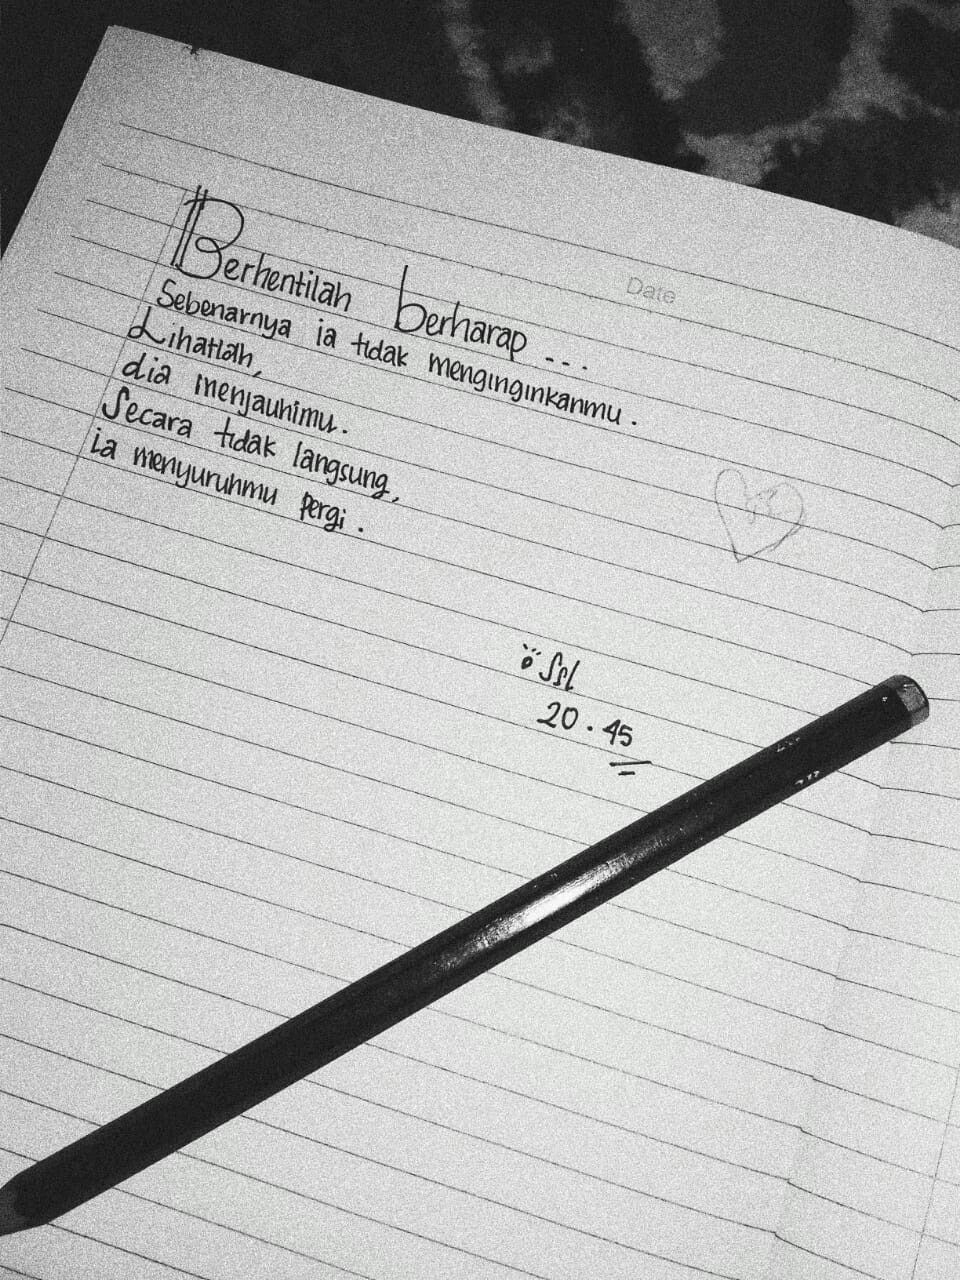 Date
Berhentilah berharap ...
Sebenarnya ia tidak menginginkanmu.
Lihatlah,
dia menjauhimu.
Secara tidak langsung,
ia menyuruhmu pergi.
Ssl
20.45